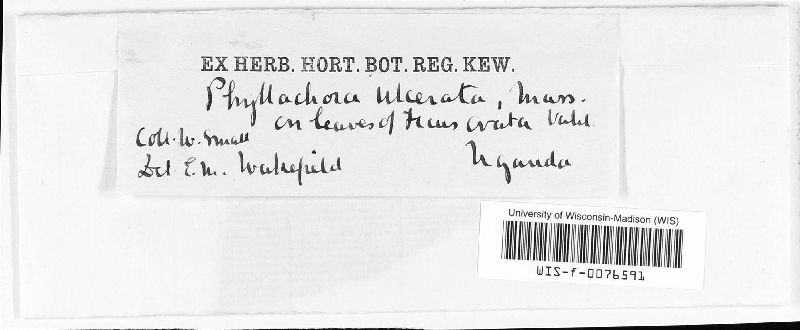 EX HERB. HORT. BOT. REG. KEW.
Phyllachora ulcerata, Mass.
on leaves of Ficus ovata Vahl.
Coll. W. Small
Det. E. M. Wakefield
Uganda
University of Wisconsin-Madison (WIS)
WIS-f-0076591